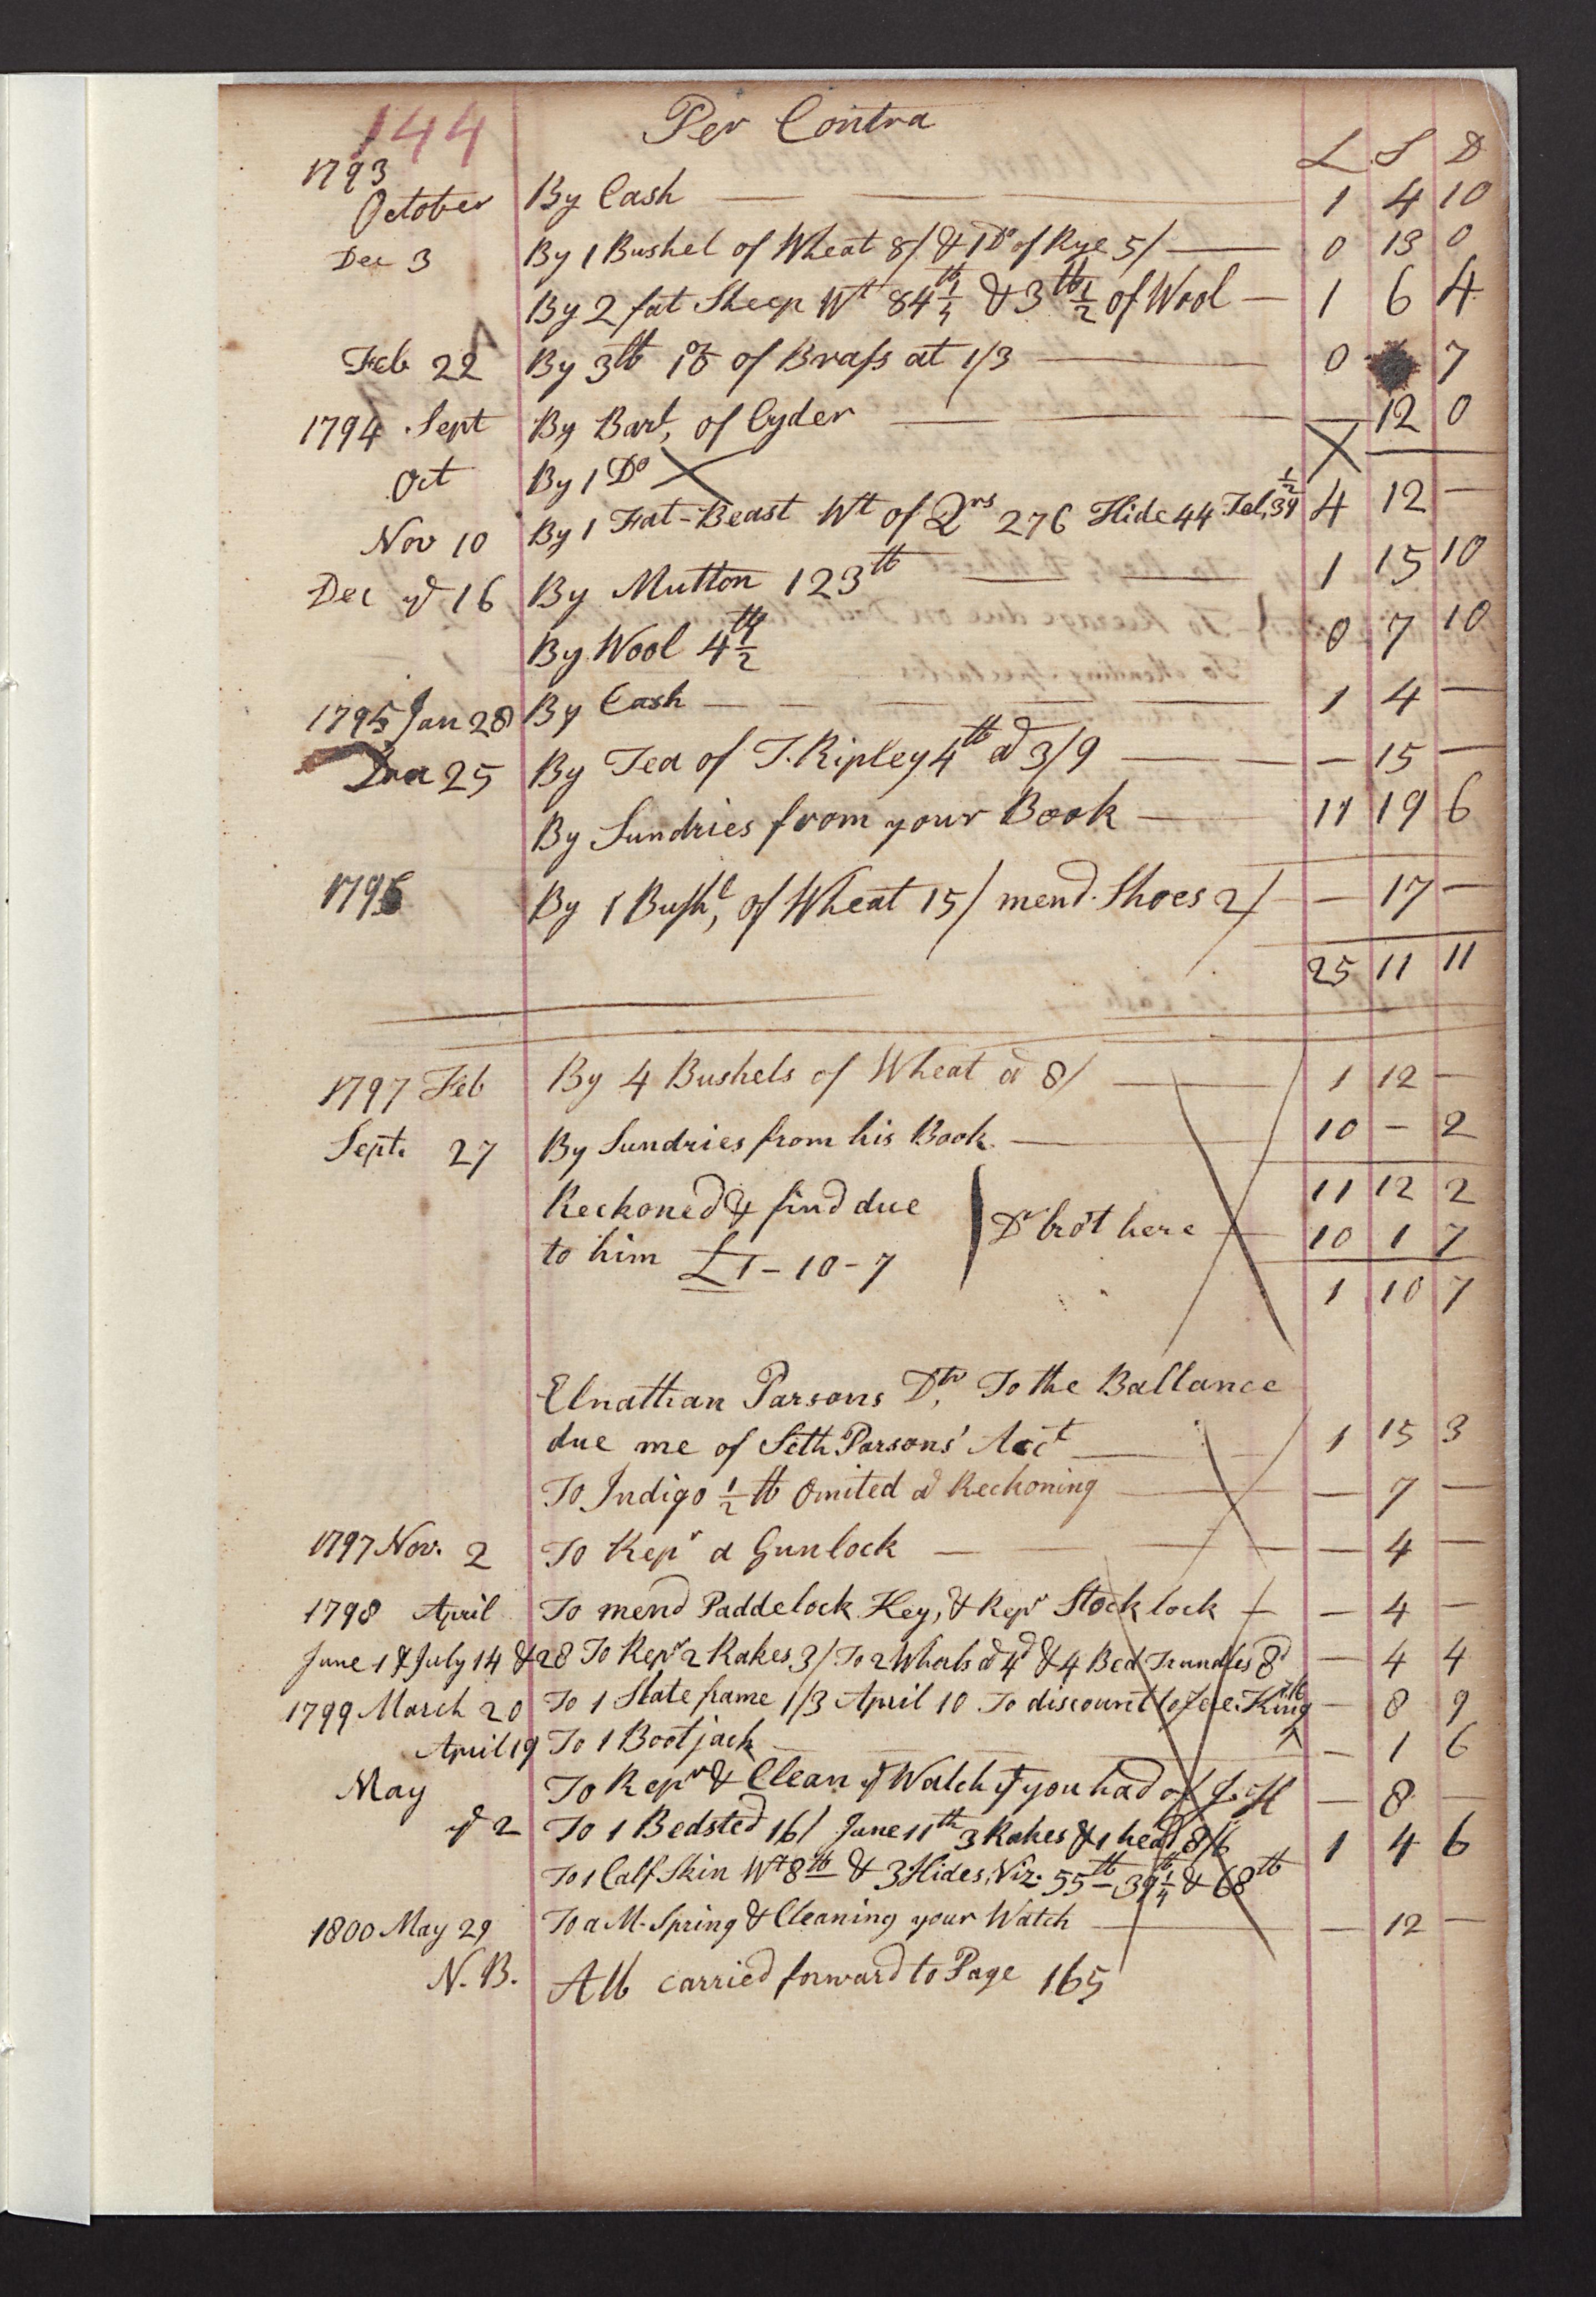 144
Per Contra
L S D
1793
October By Cash 1 4 10
Dec 3 By 1 Bushel of Wheat 8/ & 1 Do of Rye 5/ 0 13 0
By 2 fat Sheep Wt 84 lb 1/4 & 3 lb 1/2 of Wool 1 6 4
Feb 22 By 3 lb 1 oz of Brass at 1/3 0 7
1794 Sept By Barl, of Cyder — 12 0
Oct By 1 Do
Nov 10 By 1 Fat-Beast Wt of Qrs 276 Hide 44 Tal, 34 1/2 4 12 —
Dec ye 16 By Mutton 123 lb 1 15 10
By Wool 4 lb 1/2 0 7 10
1795 Jan 28 By Cash 1 4 —
25 By Tea of T. Ripley 4 lb @ 3/9 — 15 —
By Sundries from your Book 11 19 6
1796 By 1 Bushl, of Wheat 15/ mend. Shoes 2/ — 17 —
25 11 11
1797 Feb By 4 Bushels of Wheat @ 8/ 1 12 —
Sept. 27 By Sundries from his Book. 10 — 2
Reckoned & find due 11 12 2
to him £1-10-7 Dr bro't here 10 1 7
1 10 7
Elnathan Parsons Dr, To the Ballance
due me of Seth Parsons' Acct 1 15 3
To Indigo 1/2 lb Omited @ Reckoning — 7 —
1797 Nov. 2 To Repr a Gunlock — 4 —
1798 April To mend Paddelock Key, & Repr Stock lock — 4 —
June 1 & July 14 & 28 To Repr 2 Rakes 3/ To 2 Whorls @ 4d & 4 Bed Trundles 8d — 4 4
1799 March 20 To 1 Slate frame 1/3 April 10 To discount to King 7/6 — 8 9
April 19 To 1 Bootjack — 1 6
May To Repr & Clean ye Watch yt you had of — 8 —
ye 2 To 1 Bedsted 16/ June 11th 3 Rakes & 1 head 8/6 1 4 6
To 1 Calf Skin Wt 8 lb & 3 Hides, Viz: 55 lb — 39 lb 1/4 & 68 lb
1800 May 29 To a M. Spring & Cleaning your Watch — 12 —
N.B. All carried forward to Page 165